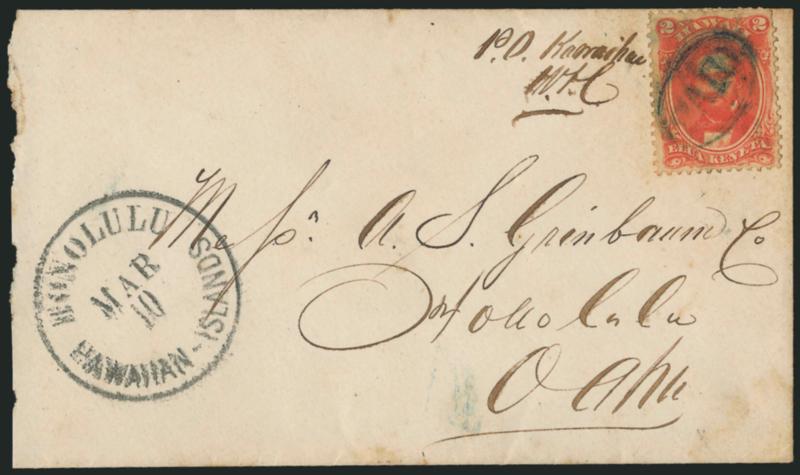 P.O. Kawaihae
W.H.C
2 HAWAII 2
PAID
ELUA KENETA
HONOLULU
MAR
10
HAWAIIAN-ISLANDS
Messrs. A. S. Grinbaum Co
Honolulu
Oahu